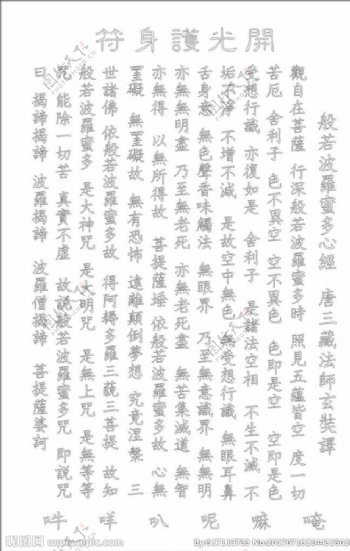 開光護身符
般若波羅蜜多心經 唐三藏法師玄奘譯
觀自在菩薩 行深般若波羅蜜多時 照見五蘊皆空 度一切
苦厄 舍利子 色不異空 空不異色 色即是空 空即是色
受想行識 亦復如是 舍利子 是諸法空相 不生不滅 不
垢不淨 不增不減 是故空中無色 無受想行識 無眼耳鼻
舌身意 無色聲香味觸法 無眼界 乃至無意識界 無無明
亦無無明盡 乃至無老死 亦無老死盡 無苦集滅道 無智
亦無得 以無所得故 菩提薩埵 依般若波羅蜜多故 心無
罣礙 無罣礙故 無有恐怖 遠離顛倒夢想 究竟涅槃 三
世諸佛 依般若波羅蜜多故 得阿耨多羅三藐三菩提 故知
般若波羅蜜多 是大神咒 是大明咒 是無上咒 是無等等
咒 能除一切苦 真實不虛 故說般若波羅蜜多咒 即說咒
曰 揭諦揭諦 波羅揭諦 波羅僧揭諦 菩提薩婆訶
吽 咩 叭 呢 嘛 唵